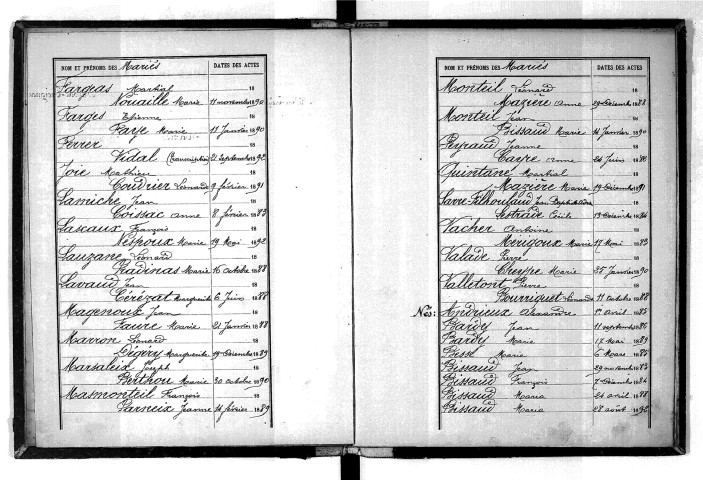 NOM ET PRÉNOMS DES Mariés DATES DES ACTES
Fargeas Martial 18
Nouaille Marie 11 novembre 1890
Farges Etienne 18
Faye Marie 11 Janvier 1890
Ferrer 18
Vidal (transcription) 21 septembre 1892
Joie Mathieu 18
Coudrier Léonarde 9 février 1891
Lamiche Jean 18
Coissac Anne 8 février 1883
Lascaux François 18
Nespoux Marie 19 Mai 1892
Lauzane Léonard 18
Pradinas Marie 16 octobre 1888
Lavaud Jean 18
Cérézat Marguerite 6 Juin 1888
Magenoux Jean 18
Faure Marie 21 Janvier 1888
Marron Léonard 18
Dégery Marguerite 19 décembre 1889
Marsaleix Joseph 18
Berthou Marie 30 octobre 1890
Masmonteil François 18
Parneix Jeanne 14 février 1889
NOM ET PRÉNOMS DES Mariés DATES DES ACTES
Monteil Léonard 18
Mazière Anne 29 décembre 1888
Monteil Jean 18
Bissaud Marie 14 Janvier 1890
Peyraud Jeanne 18
Caype Anne 24 Juin
Quintane Martial 18
Mazière Marie 19 décembre 1891
Serre-Filhoulaud Jean Baptiste 18
Lestrade Cécile 13 décembre 1884
Vacher Antoine 18
Mérigoux Marie 17 Mai 1883
Valade Pierre 18
Cheype Marie 25 Janvier 1890
Valletont Pierre 18
Bourriquet Léonarde 11 octobre 1886
Nés: Andrieux Alexandre 1er avril 1885
Bardy Jean 11 septembre 1886
Bardy Marie 17 Mai 1889
Besse Marie 6 Mars
Bissaud Jean 29 novembre 1883
Bissaud François 7 décembre 1884
Bissaud Maria 24 avril 1888
Bissaud Maria 28 août 1892